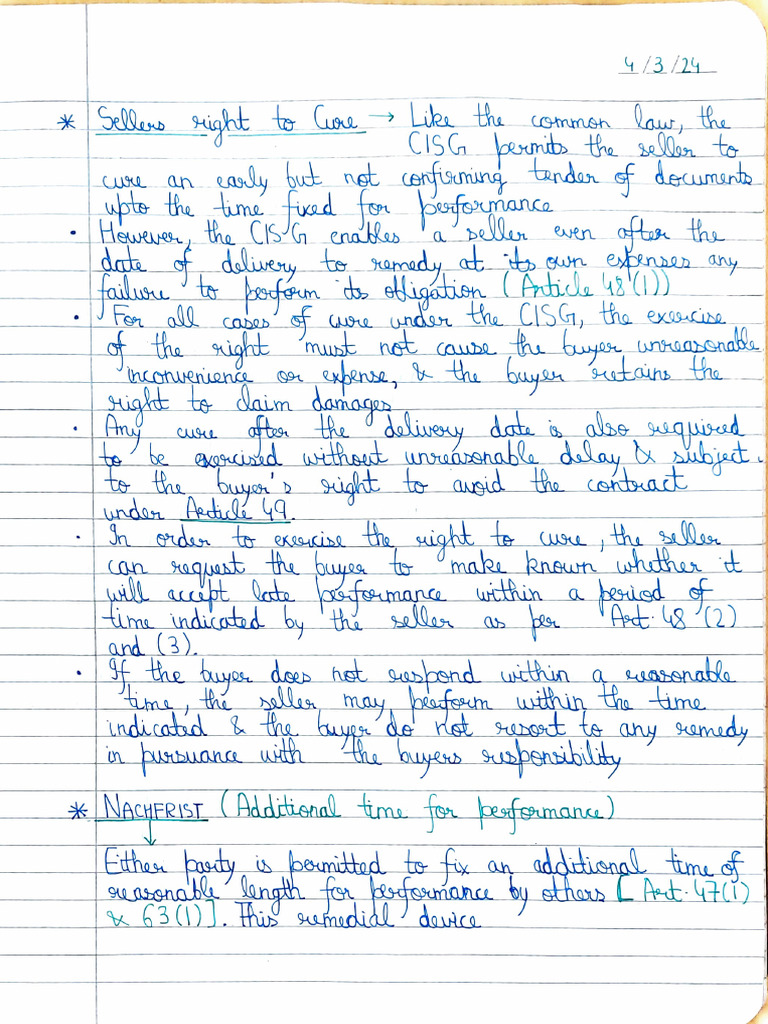 4/3/24
* Sellers right to Cure → Like the common law, the
CISG permits the seller to
cure an early but not confirming tender of documents
upto the time fixed for performance
• However, the CISG enables a seller even after the
date of delivery to remedy at its own expenses any
failure to perform its obligation (Article 48(1))
• For all cases of cure under the CISG, the exercise
of the right must not cause the buyer unreasonable
inconvenience or expense, & the buyer retains the
right to claim damages
• Any cure after the delivery date is also required
to be exercised without unreasonable delay & subject
to the buyer's right to avoid the contract
under Article 49.
• In order to exercise the right to cure, the seller
can request the buyer to make known whether it
will accept late performance within a period of
time indicated by the seller as per Art. 48 (2)
and (3).
• If the buyer does not respond within a reasonable
time, the seller may perform within the time
indicated & the buyer do not resort to any remedy
in pursuance with the buyers responsibility
* NACHFRIST (Additional time for performance)
↓
Either party is permitted to fix an additional time of
reasonable length for performance by others [Art. 47(1)
& 63(1)]. This remedial device